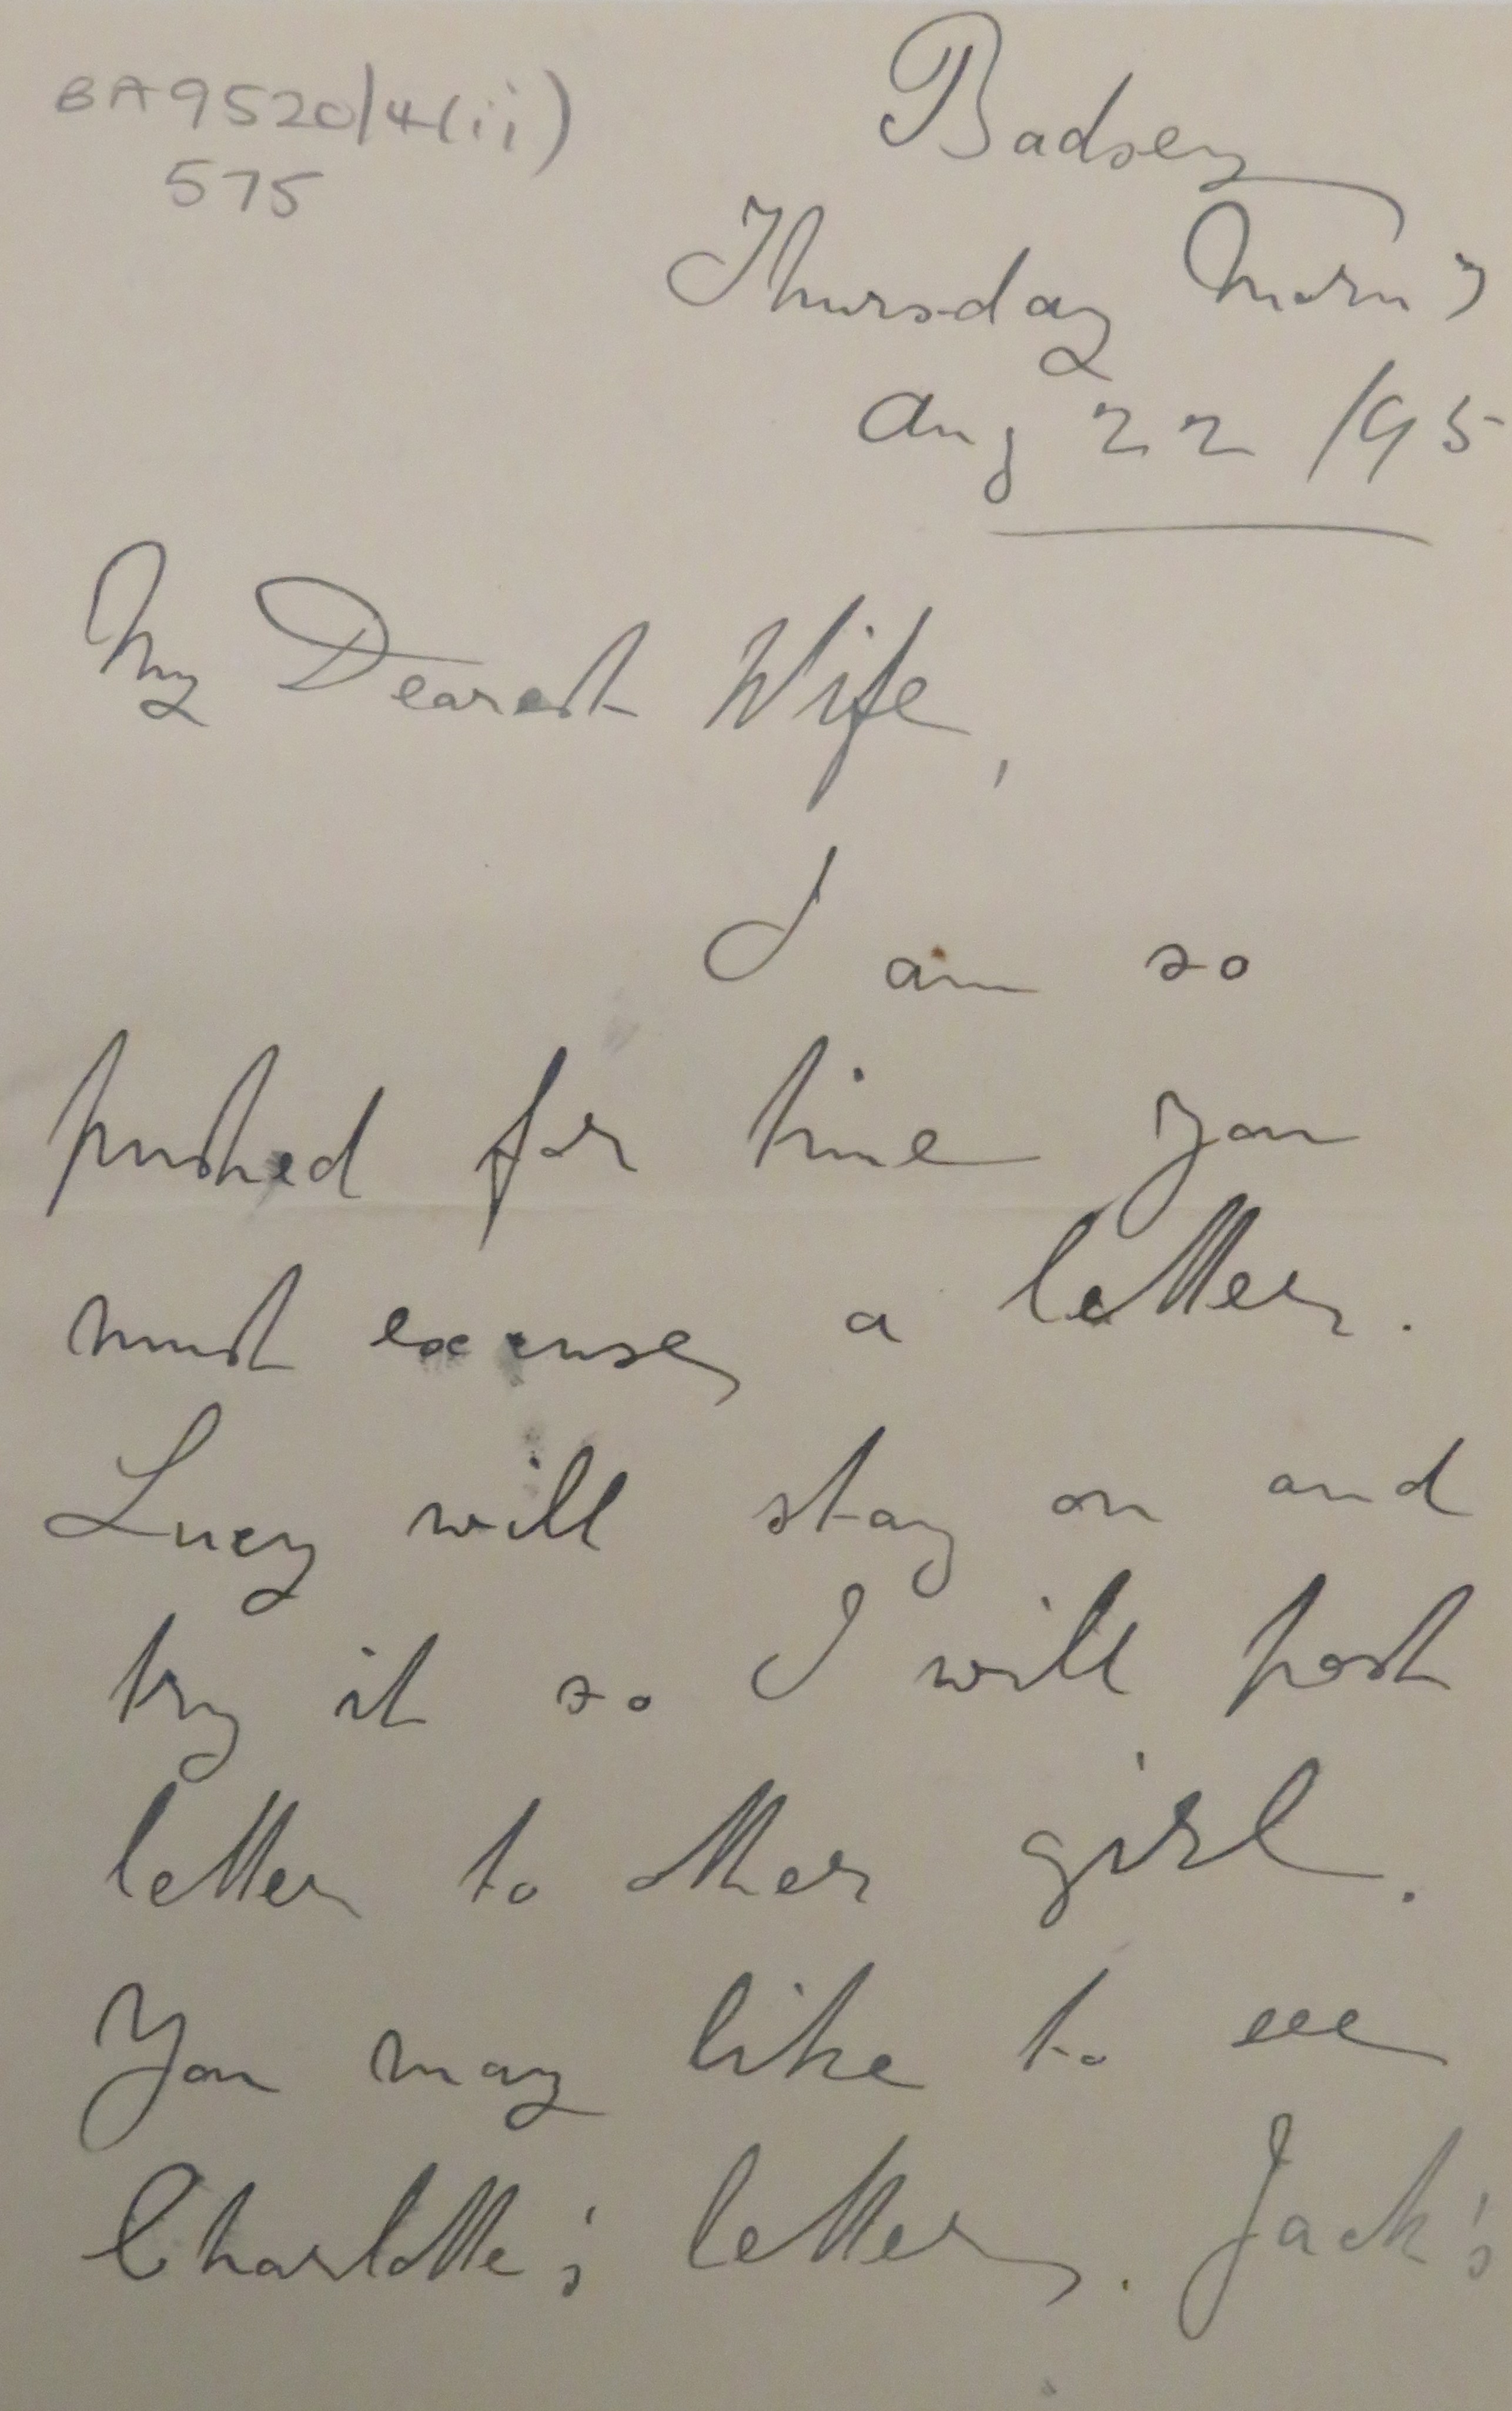 BA9520/4(ii)
575
Badsey
Thursday Morng
Aug 22 /95
My Dearest Wife,
I am so
pushed for time you
must excuse a letter.
Lucy will stay on and
try it so I will post
letter to other girl.
You may like to see
Charlotte's letter. Jack's